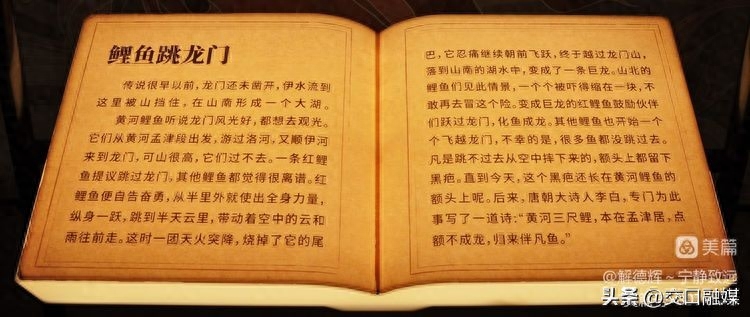 鲤鱼跳龙门
传说很早以前，龙门还未凿开，伊水流到
这里被山挡住，在山南形成一个大湖。
黄河鲤鱼听说龙门风光好，都想去观光。
它们从黄河孟津段出发，游过洛河，又顺伊河
来到龙门，可山很高，它们过不去。一条红鲤
鱼提议跳过龙门，其他鲤鱼都觉得很离谱。红
鲤鱼便自告奋勇，从半里外就使出全身力量，
纵身一跃，跳到半天云里，带动着空中的云和
雨往前走。这时一团天火突降，烧掉了它的尾
巴，它忍痛继续朝前飞跃，终于越过龙门山，
落到山南的湖水中，变成了一条巨龙。山北的
鲤鱼们见此情景，一个个被吓得缩在一块，不
敢再去冒这个险。变成巨龙的红鲤鱼鼓励伙伴
们跃过龙门，化鱼成龙。其他鲤鱼也开始一个
个飞越龙门，不幸的是，很多鱼都没跳过去。
凡是跳不过去从空中摔下来的，额头上都留下
黑疤。直到今天，这个黑疤还长在黄河鲤鱼的
额头上呢。后来，唐朝大诗人李白，专门为此
事写了一道诗：“黄河三尺鲤，本在孟津居，点
额不成龙，归来伴凡鱼。”
美篇
@解德辉～宁静致远
头条 @交口融媒